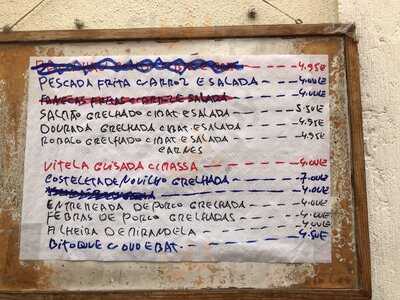 4.95€
PESCADA FRITA C/ARROZ E SALADA - - 4.00€
4.00€
SALMÃO GRELHADO C/BAT. E SALADA - - - 5.50€
DOURADA GRELHADA C/BAT. E SALADA - - 4.95€
ROBALO GRELHADO C/BAT. E SALADA - - - 4.95€
CARNES
VITELA GUISADA C/MASSA - - - - 4.00€
COSTELETA DE NOVILHO GRELHADA - - - 7.00€
4.00€
ENTREMEADA DE PORCO GRELHADA - - - 4.00€
FEBRAS DE PORCO GRELHADAS - - - 4.00€
ALHEIRA DE MIRANDELA - - - - 4.00€
BITOQUE C/OVO E BAT. - - - - 4.50€